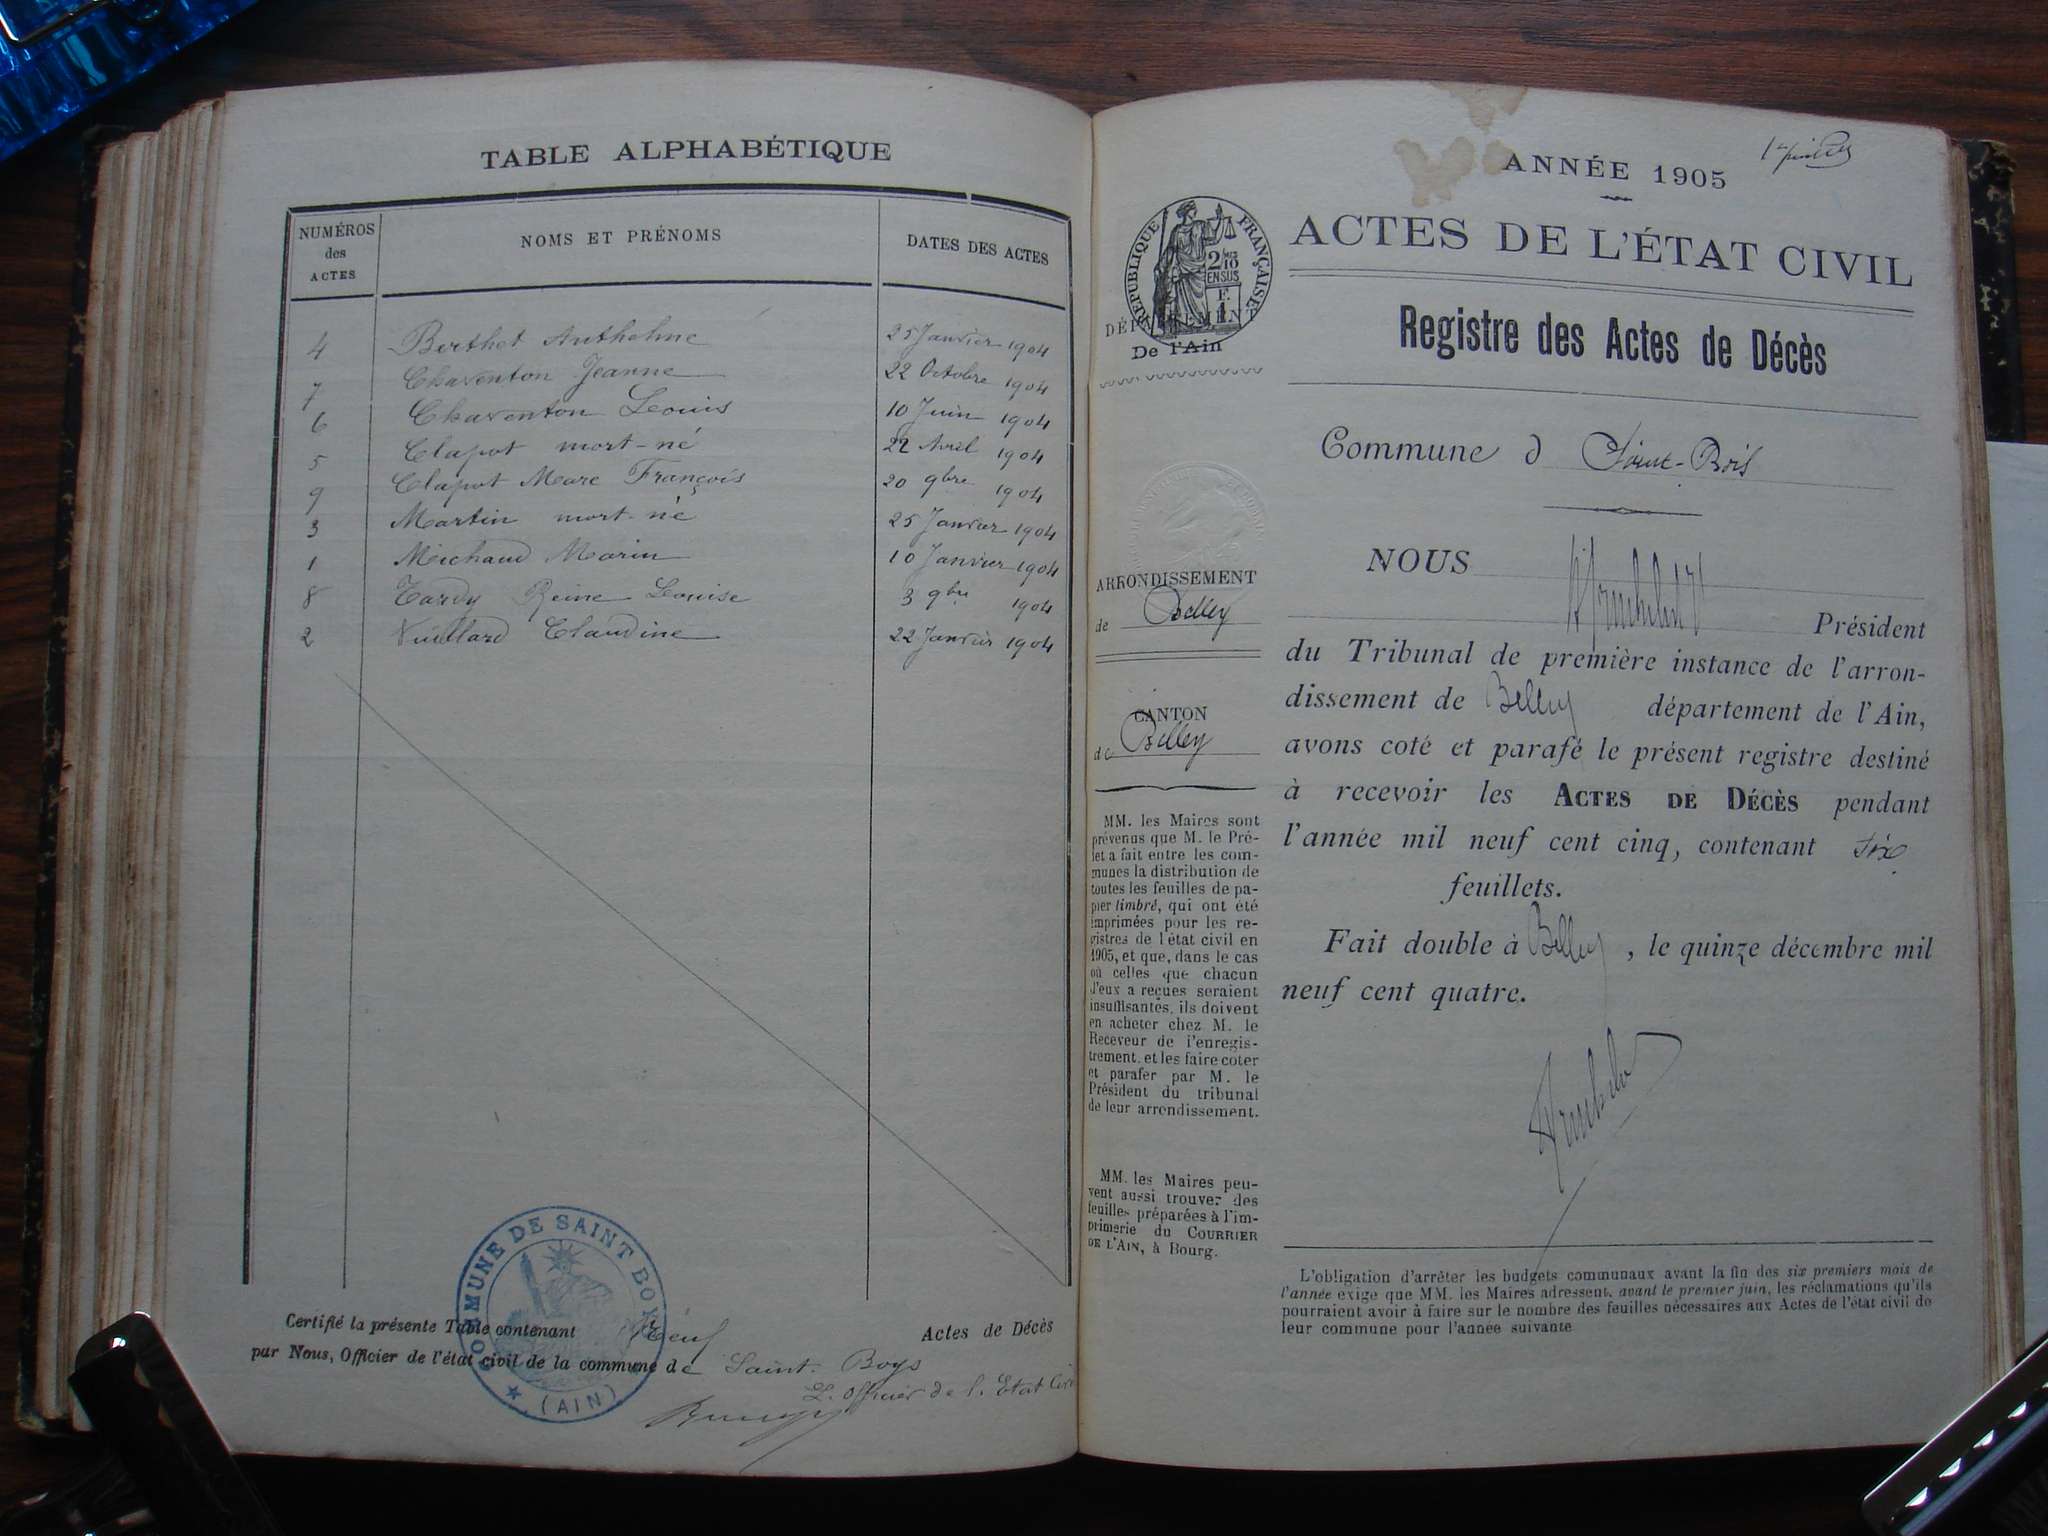 TABLE ALPHABÉTIQUE
NUMÉROS des ACTES
NOMS ET PRÉNOMS
DATES DES ACTES
4 Berthet Anthelme 25 Janvier 1904
7 Charenton Jeanne 22 Octobre 1904
6 Charenton Louis 10 Juin 1904
5 Clapot mort-né 22 Avril 1904
9 Clapot Marc François 20 9bre 1904
3 Martin mort-né 25 Janvier 1904
1 Michaud Marin 10 Janvier 1904
8 Tardy Reine Louise 3 9bre 1904
2 Vuillard Claudine 22 Janvier 1904
COMMUNE DE SAINT BOYS
(AIN)
Certifié la présente Table contenant Neuf Actes de Décès
par Nous, Officier de l'état civil de la commune de Saint-Boys
L'officier de l'Etat Civil
ANNÉE 1905
ACTES DE L'ÉTAT CIVIL
RÉPUBLIQUE FRANÇAISE
2/10 EN SUS
DÉPARTEMENT
De l'Ain
Registre des Actes de Décès
Commune d Saint-Bois
ARRONDISSEMENT
de Belley
CANTON
de Belley
MM. les Maires sont
prévenus que M. le Pré-
fet a fait entre les com-
munes la distribution de
toutes les feuilles de pa-
pier timbré, qui ont été
imprimées pour les re-
gistres de l'état civil en
1905, et que, dans le cas
où celles que chacun
d'eux a reçues seraient
insuffisantes, ils doivent
en acheter chez M. le
Receveur de l'enregis-
trement, et les faire coter
et parafer par M. le
Président du tribunal
de leur arrondissement.
MM. les Maires peu-
vent aussi trouver des
feuilles préparées à l'im-
primerie du COURRIER
DE L'AIN, à Bourg.
NOUS
Président
du Tribunal de première instance de l'arron-
dissement de Belley département de l'Ain,
avons coté et parafé le présent registre destiné
à recevoir les ACTES DE DÉCÈS pendant
l'année mil neuf cent cinq, contenant six
feuillets.
Fait double à Belley, le quinze décembre mil
neuf cent quatre.
L'obligation d'arrêter les budgets communaux avant la fin des six premiers mois de
l'année exige que MM. les Maires adressent, avant le premier juin, les réclamations qu'ils
pourraient avoir à faire sur le nombre des feuilles nécessaires aux Actes de l'état civil de
leur commune pour l'année suivante